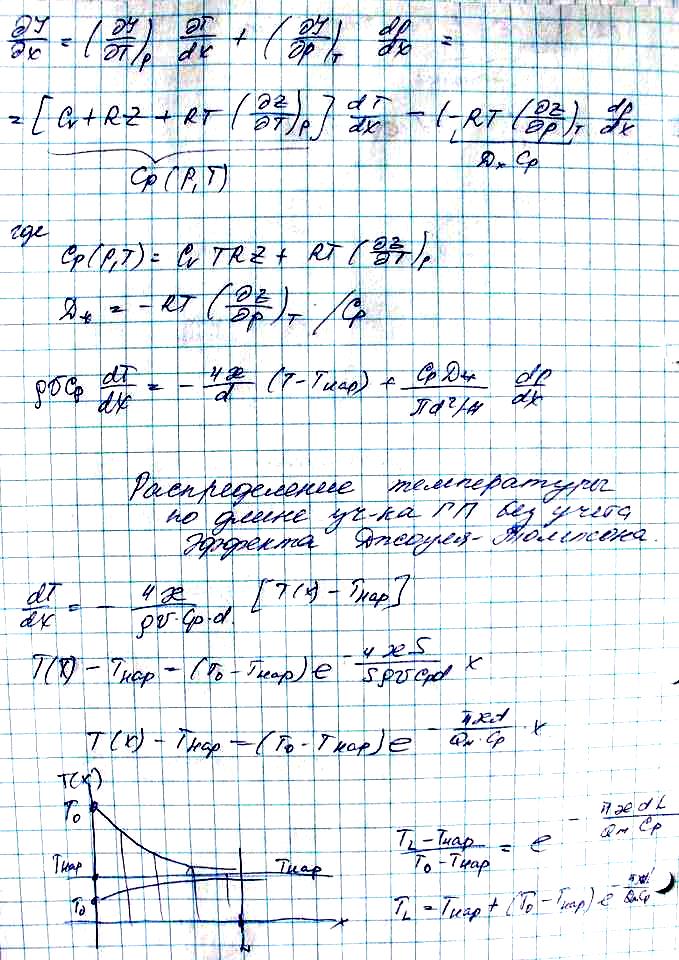 ∂J/∂x = (∂J/∂T)_P ∂T/dx + (∂J/∂p)_T dp/dx =
= [Cv + RZ + RT (∂Z/∂T)_P] dT/dx − (−RT (∂Z/∂p)_T dp/dx
Cp(P,T)
D* Cp
где
Cp(P,T) = Cv TRZ + RT (∂Z/∂T)_P
D* = −RT (∂Z/∂p)_T /Cp
ρυCp dT/dx = − 4æ/d (T − Tнар) + Cp D*/(Пd²/4) dp/dx
Распределение температуры
по длине уч-ка ГП без учета
Эффекта Джоуля-Томпсона.
dT/dx = − 4æ/(ρυ·Cp·d) [T(x) − Tнар]
T(x) − Tнар = (T₀ − Tнар) e^(− 4æS/(SρυCpd) x)
T(x) − Tнар = (T₀ − Tнар) e^(− πæd/(Qм·Cp) · x)
T(x)
T₀
Tнар
Tнар
T₀
x
L
(T_L − Tнар)/(T₀ − Tнар) = e^(− πædL/(Qм Cp))
T_L = Tнар + (T₀ − Tнар) e